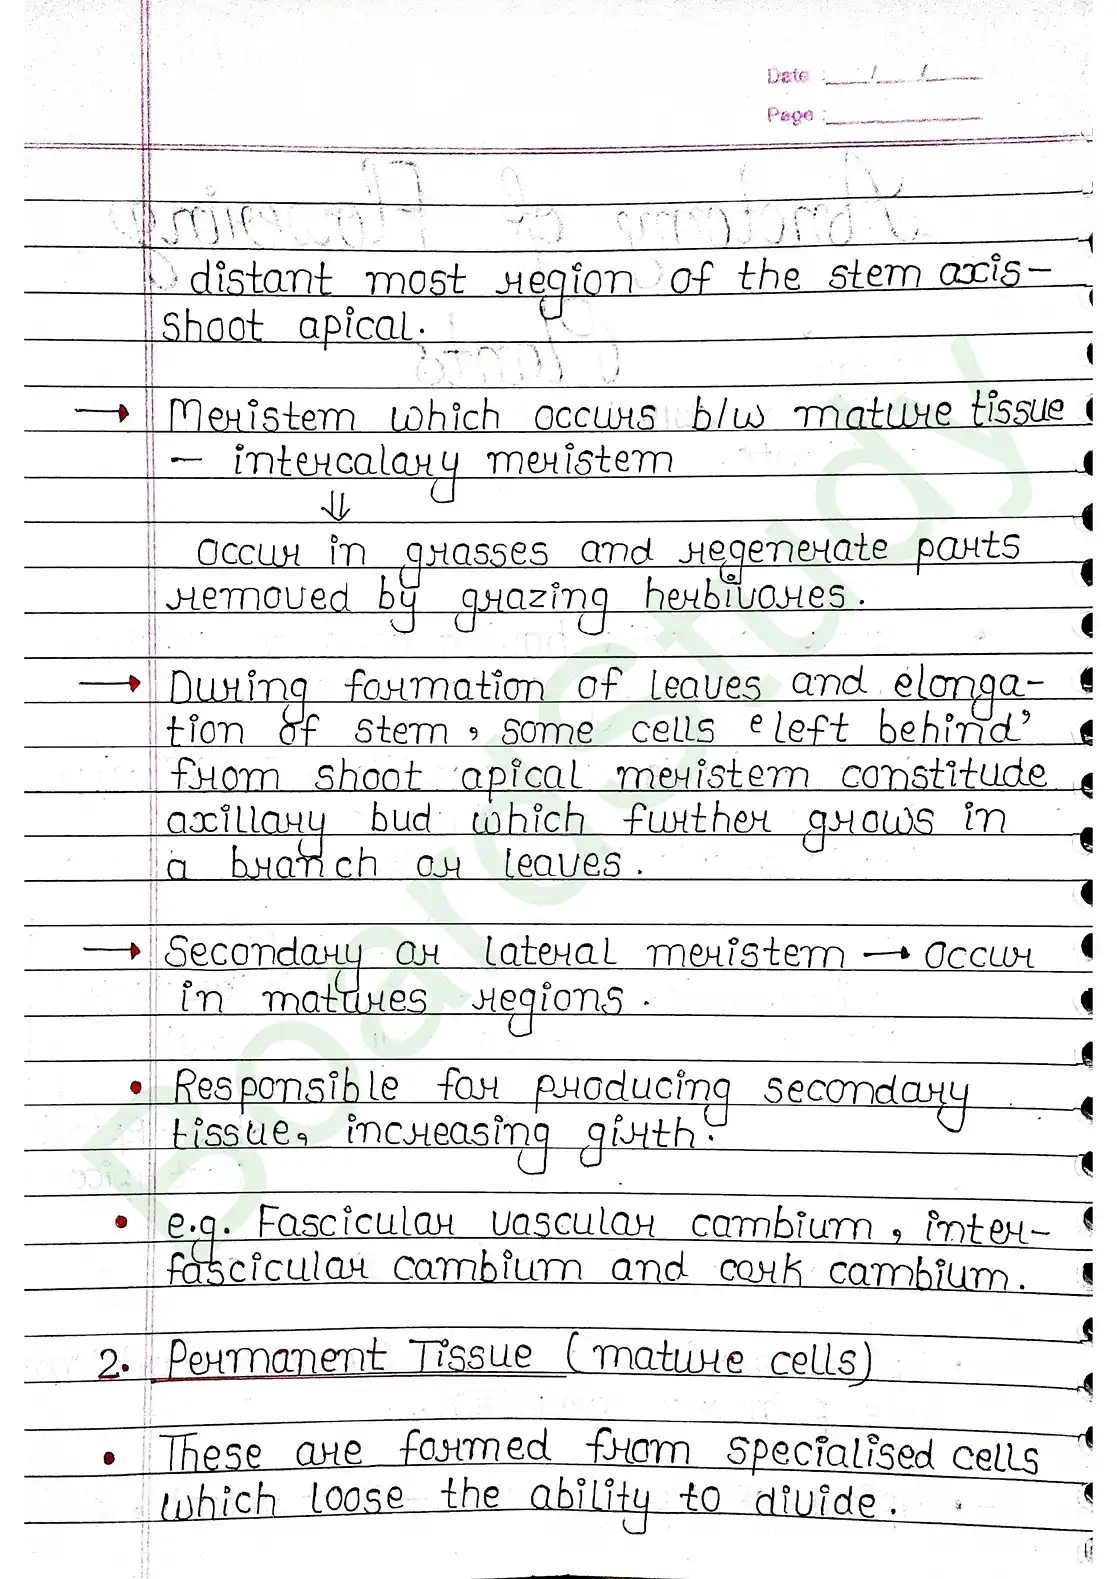 Date : __/__/__
Page :
distant most region of the stem axis-
shoot apical.
→ Meristem which occurs b/w mature tissue
- intercalary meristem
⇓
occur in grasses and regenerate parts
removed by grazing herbivores.
→ During formation of leaves and elonga-
tion of stem, some cells 'left behind'
from shoot apical meristem constitude
axillary bud which further grows in
a branch or leaves.
→ Secondary or lateral meristem → occur
in matures regions.
• Responsible for producing secondary
tissue, increasing girth.
• e.g. Fascicular vascular cambium, inter-
fascicular cambium and cork cambium.
2. Permanent Tissue (mature cells)
• These are formed from specialised cells
which loose the ability to divide.
BoardStudy